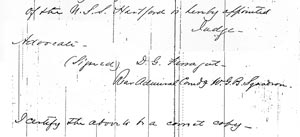 of the U.S.S. Hartford is hereby appointed
Judge-
Advocate-
(Signed) D. G. Farragut-
Rear Admiral Comdg W. G. B. Squadron.
I certify the above to be a correct copy-